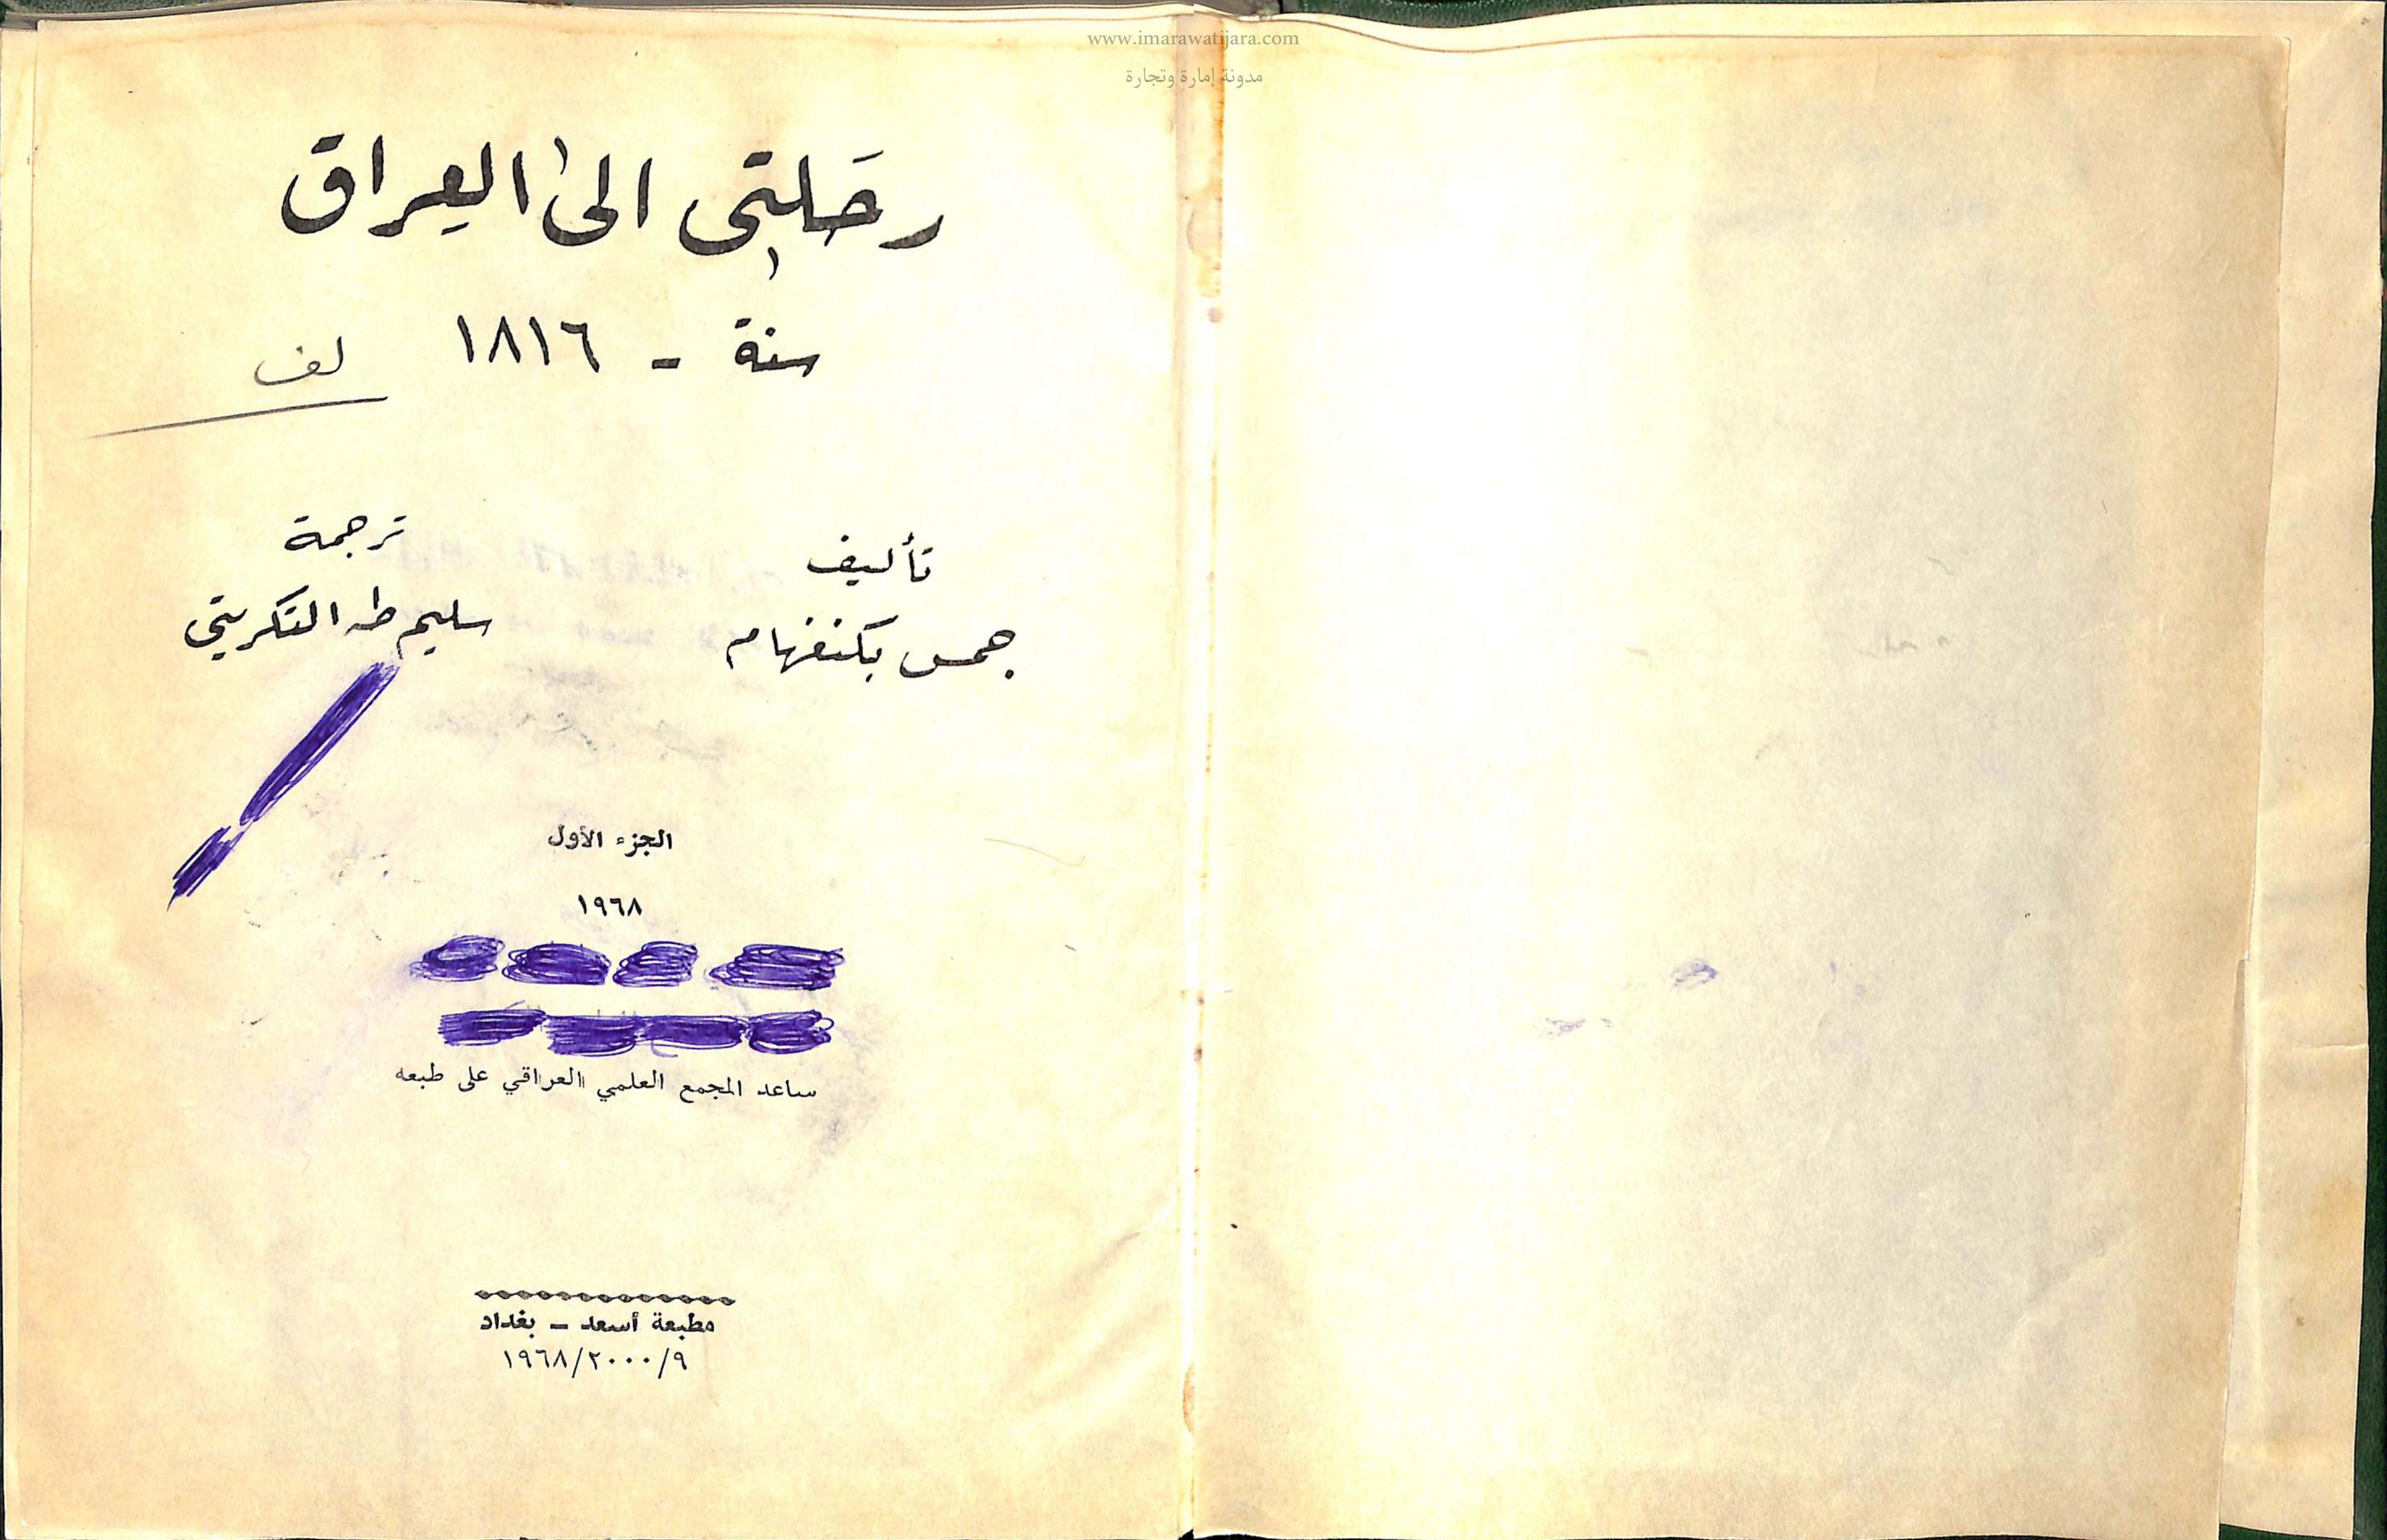 www.imarawatijara.com
مدونة إمارة وتجارة
رحلتي الى العراق
سنة - ١٨١٦
لف
تأليف
جمس بكنغهام
ترجمة
سليم طه التكريتي
الجزء الأول
١٩٦٨
ساعد المجمع العلمي العراقي على طبعه
مطبعة أسعد - بغداد
١٩٦٨/٢٠٠٠/٩